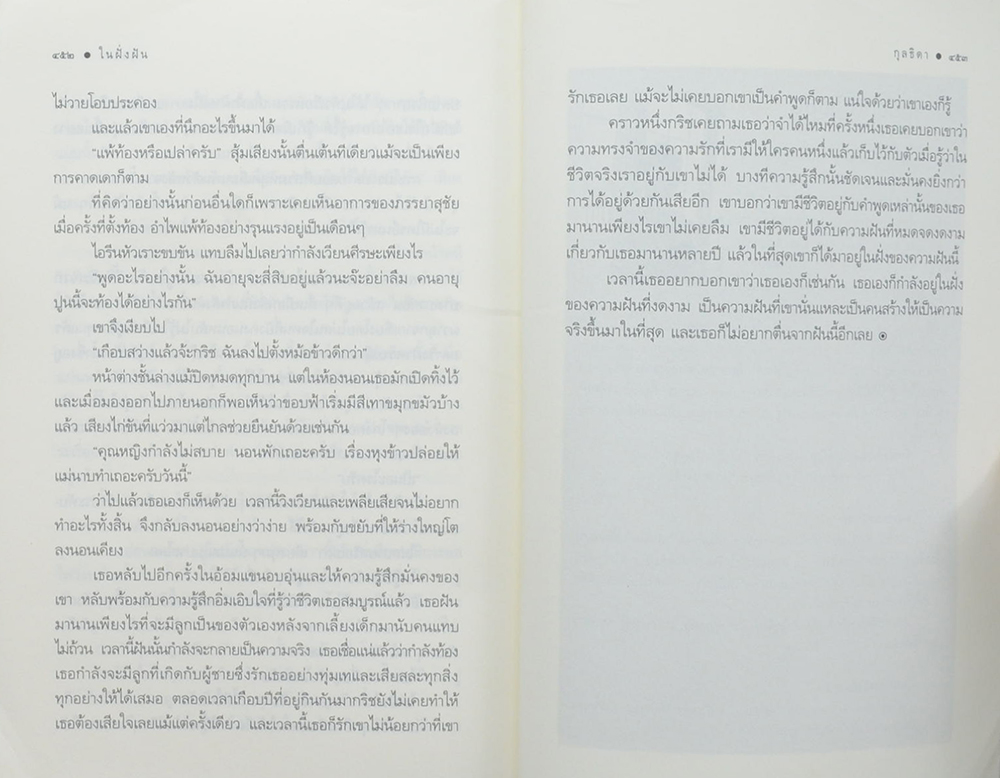 ๔๕๒ ● ในฝั่งฝัน
ไม่วายโอบประคอง
และแล้วเขาเองที่นึกอะไรขึ้นมาได้
“แพ้ท้องหรือเปล่าครับ” สุ้มเสียงนั้นตื่นเต้นทีเดียวแม้จะเป็นเพียง
การคาดเดาก็ตาม
ที่คิดว่าอย่างนั้นก่อนอื่นใดก็เพราะเคยเห็นอาการของภรรยาสุชัย
เมื่อครั้งที่ตั้งท้อง อำไพแพ้ท้องอย่างรุนแรงอยู่เป็นเดือนๆ
ไอรีนหัวเราะขบขัน แทบลืมไปเลยว่ากำลังเวียนศีรษะเพียงไร
“พูดอะไรอย่างนั้น ฉันอายุจะสี่สิบอยู่แล้วนะจ๊ะอย่าลืม คนอายุ
ปูนนี้จะท้องได้อย่างไรกัน”
เขาจึงเงียบไป
“เกือบสว่างแล้วจ้ะกริช ฉันลงไปตั้งหม้อข้าวดีกว่า”
หน้าต่างชั้นล่างแม้ปิดหมดทุกบาน แต่ในห้องนอนเธอมักเปิดทิ้งไว้
และเมื่อมองออกไปภายนอกก็พอเห็นว่าขอบฟ้าเริ่มมีสีเทาขมุกขมัวบ้าง
แล้ว เสียงไก่ขันที่แว่วมาแต่ไกลช่วยยืนยันด้วยเช่นกัน
“คุณหญิงกำลังไม่สบาย นอนพักเถอะครับ เรื่องหุงข้าวปล่อยให้
แม่นาบทำเถอะครับวันนี้”
ว่าไปแล้วเธอเองก็เห็นด้วย เวลานี้วิงเวียนและเพลียเสียจนไม่อยาก
ทำอะไรทั้งสิ้น จึงกลับลงนอนอย่างว่าง่าย พร้อมกับขยับที่ให้ร่างใหญ่โต
ลงนอนเคียง
เธอหลับไปอีกครั้งในอ้อมแขนอบอุ่นและให้ความรู้สึกมั่นคงของ
เขา หลับพร้อมกับความรู้สึกอิ่มเอิบใจที่รู้ว่าชีวิตเธอสมบูรณ์แล้ว เธอฝัน
มานานเพียงไรที่จะมีลูกเป็นของตัวเองหลังจากเลี้ยงเด็กมานับคนแทบ
ไม่ถ้วน เวลานี้ฝันนั้นกำลังจะกลายเป็นความจริง เธอเชื่อแน่แล้วว่ากำลังท้อง
เธอกำลังจะมีลูกที่เกิดกับผู้ชายซึ่งรักเธออย่างทุ่มเทและเสียสละทุกสิ่ง
ทุกอย่างให้ได้เสมอ ตลอดเวลาเกือบปีที่อยู่กินกันมากริชยังไม่เคยทำให้
เธอต้องเสียใจเลยแม้แต่ครั้งเดียว และเวลานี้เธอก็รักเขาไม่น้อยกว่าที่เขา
กุลธิดา ● ๔๕๓
รักเธอเลย แม้จะไม่เคยบอกเขาเป็นคำพูดก็ตาม แน่ใจด้วยว่าเขาเองก็รู้
คราวหนึ่งกริชเคยถามเธอว่าจำได้ไหมที่ครั้งหนึ่งเธอเคยบอกเขาว่า
ความทรงจำของความรักที่เรามีให้ใครคนหนึ่งแล้วเก็บไว้กับตัวเมื่อรู้ว่าใน
ชีวิตจริงเราอยู่กับเขาไม่ได้ บางทีความรู้สึกนั้นชัดเจนและมั่นคงยิ่งกว่า
การได้อยู่ด้วยกันเสียอีก เขาบอกว่าเขามีชีวิตอยู่กับคำพูดเหล่านั้นของเธอ
มานานเพียงไรเขาไม่เคยลืม เขามีชีวิตอยู่ได้กับความฝันที่หมดจดงดงาม
เกี่ยวกับเธอมานานหลายปี แล้วในที่สุดเขาก็ได้มาอยู่ในฝั่งของความฝันนี้
เวลานี้เธออยากบอกเขาว่าเธอเองก็เช่นกัน เธอเองก็กำลังอยู่ในฝั่ง
ของความฝันที่งดงาม เป็นความฝันที่เขานั่นแหละเป็นคนสร้างให้เป็นความ
จริงขึ้นมาในที่สุด และเธอก็ไม่อยากตื่นจากฝันนี้อีกเลย ๏